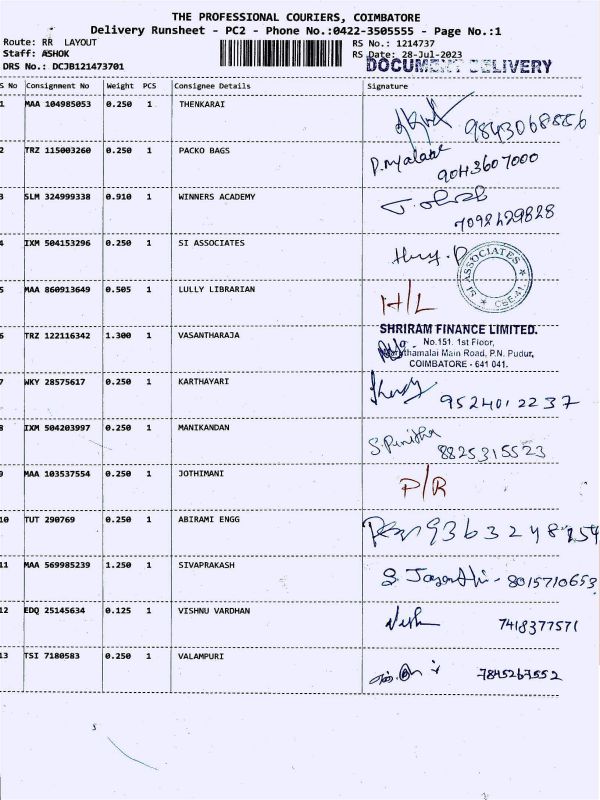 THE PROFESSIONAL COURIERS, COIMBATORE
Delivery Runsheet - PC2 - Phone No.:0422-3505555 - Page No.:1
Route: RR LAYOUT RS No.: 1214737
Staff: ASHOK RS Date: 28-Jul-2023
DRS No.: DCJB121473701 DOCUMENT DELIVERY
S No Consignment No Weight PCS Consignee Details Signature
1 MAA 104985053 0.250 1 THENKARAI 9843068886
2 TRZ 115003260 0.250 1 PACKO BAGS 9043607000
3 SLM 324999338 0.910 1 WINNERS ACADEMY 7092629828
4 IXM 504153296 0.250 1 SI ASSOCIATES
SI ASSOCIATES CBE-41
5 MAA 860913649 0.505 1 LULLY LIBRARIAN H/L
6 TRZ 122116342 1.300 1 VASANTHARAJA
SHRIRAM FINANCE LIMITED.
No.151. 1st Floor,
Main Road, P.N. Pudur,
COIMBATORE - 641 041.
7 WKY 28575617 0.250 1 KARTHAYARI 9524012237
8 IXM 504203997 0.250 1 MANIKANDAN S. Punitha 8825315523
9 MAA 103537554 0.250 1 JOTHIMANI P/R
10 TUT 290769 0.250 1 ABIRAMI ENGG 9363248254
11 MAA 569985239 1.250 1 SIVAPRAKASH S. Jayanthi - 8015710653
12 EDQ 25145634 0.125 1 VISHNU VARDHAN 7418377571
13 TSI 7180583 0.250 1 VALAMPURI 7845267552